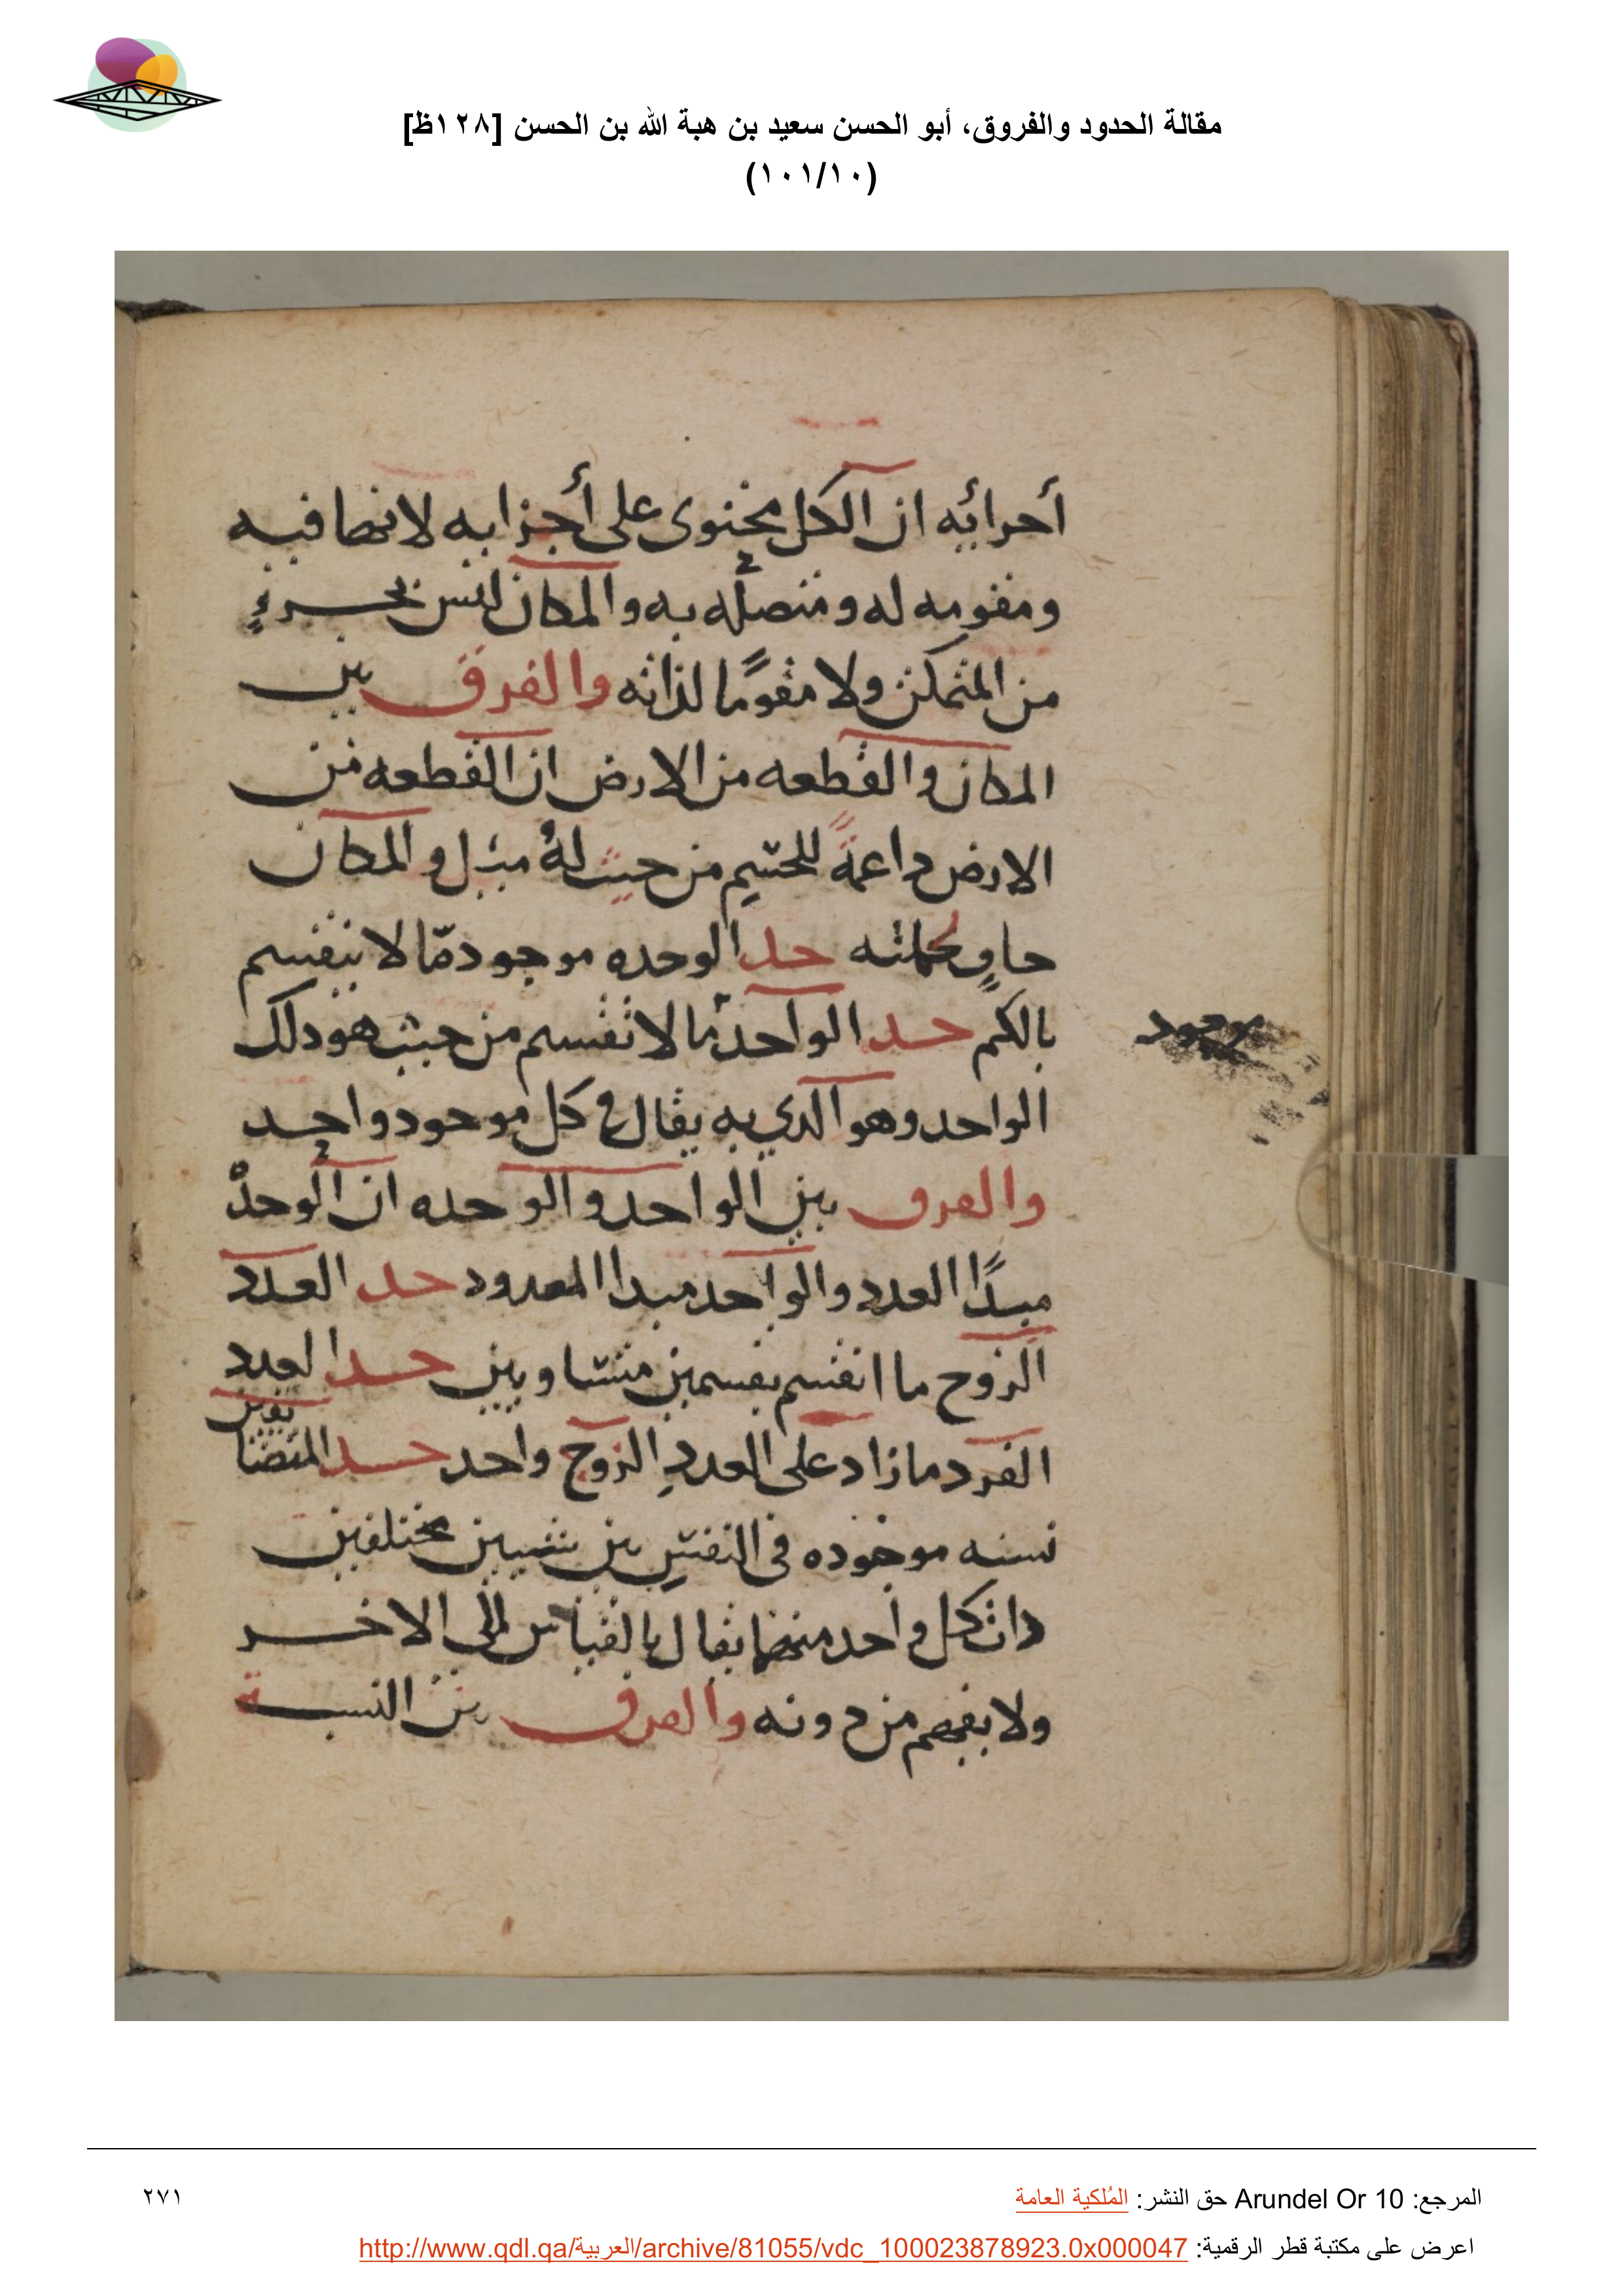 مقالة الحدود والفروق، أبو الحسن سعيد بن هبة الله بن الحسن [١٢٨ظ]
(١٠١/١٠)
أحرائه ان الكل يحتوى على أجزايه لانها فيه
ومقومه له ومتصله به والمكان ليس بجزءٍ
من المتمكن ولا مقومًا لذاته والفرق بين
المكان والقطعه من الارض ان القطعه من
الارض داعمة للجسم من حيث لهُ ميل والمكان
حاوٍ بكليته حد الوحده موجود مّا لا ينقسم
بالكم حد الواحد ما لا ينقسم من حيث هو دلك
موجود
الواحد وهو الدي به يقال في كل موحود واحد
والفرق بين الواحد والوحده ان الوحدة
مبدًا العدد والواحد مبدا المعدود حد العدد
الزوج ما انقسم بقسمين متساويين حد العدد
الفرد ما زاد على العددِ الزوج واحد حد المتضا
يفين
نسبه موجوده في النفس بين شيين مختلفين
دات كل واحد منهما يقال بالقياس إلى الاخر
ولا يفهم من دونه والفرق بين النسبة
المرجع: Arundel Or 10 حق النشر: المُلكية العامة
٢٧١
اعرض على مكتبة قطر الرقمية: http://www.qdl.qa/العربية/archive/81055/vdc_100023878923.0x000047